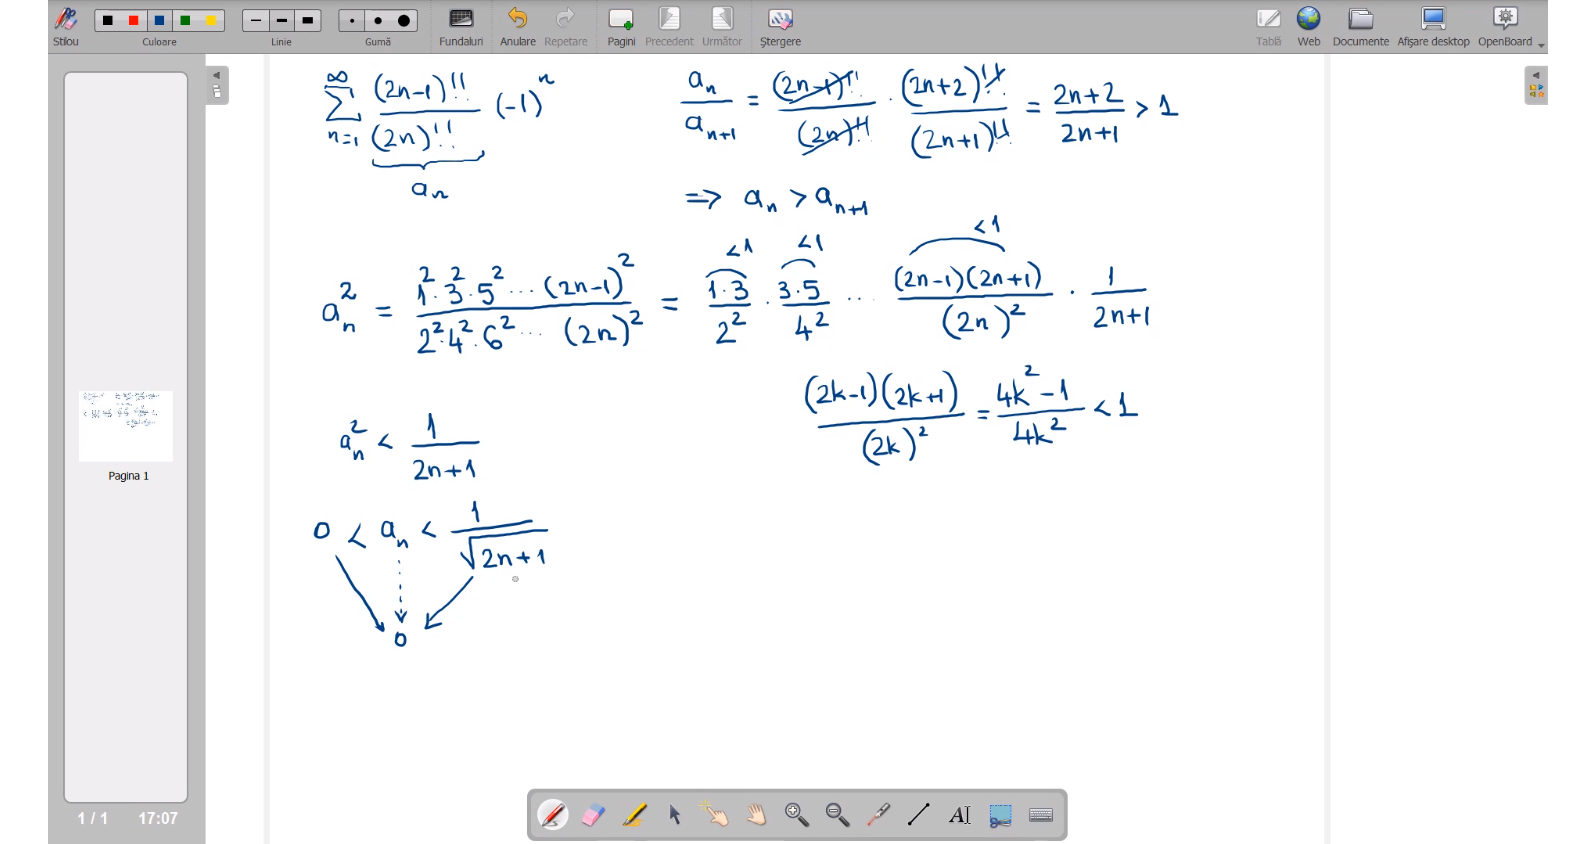 Stilou Culoare Linie Gumă Fundaluri Anulare Repetare Pagini Precedent Următor Ștergere Tablă Web Documente Afișare desktop OpenBoard
∑_{n=1}^{∞} (2n-1)!!/(2n)!! (-1)^n
a_n
a_n/a_{n+1} = (2n-1)!!/(2n)!! · (2n+2)!!/(2n+1)!! = 2n+2/2n+1 > 1
⇒ a_n > a_{n+1}
<1 <1 <1
a_n^2 = 1^2·3^2·5^2 ... (2n-1)^2/2^2·4^2·6^2 ... (2n)^2 = 1·3/2^2 · 3·5/4^2 ... (2n-1)(2n+1)/(2n)^2 · 1/2n+1
(2k-1)(2k+1)/(2k)^2 = 4k^2-1/4k^2 < 1
a_n^2 < 1/2n+1
0 < a_n < 1/√2n+1
0
Pagina 1
1 / 1 17:07
AI